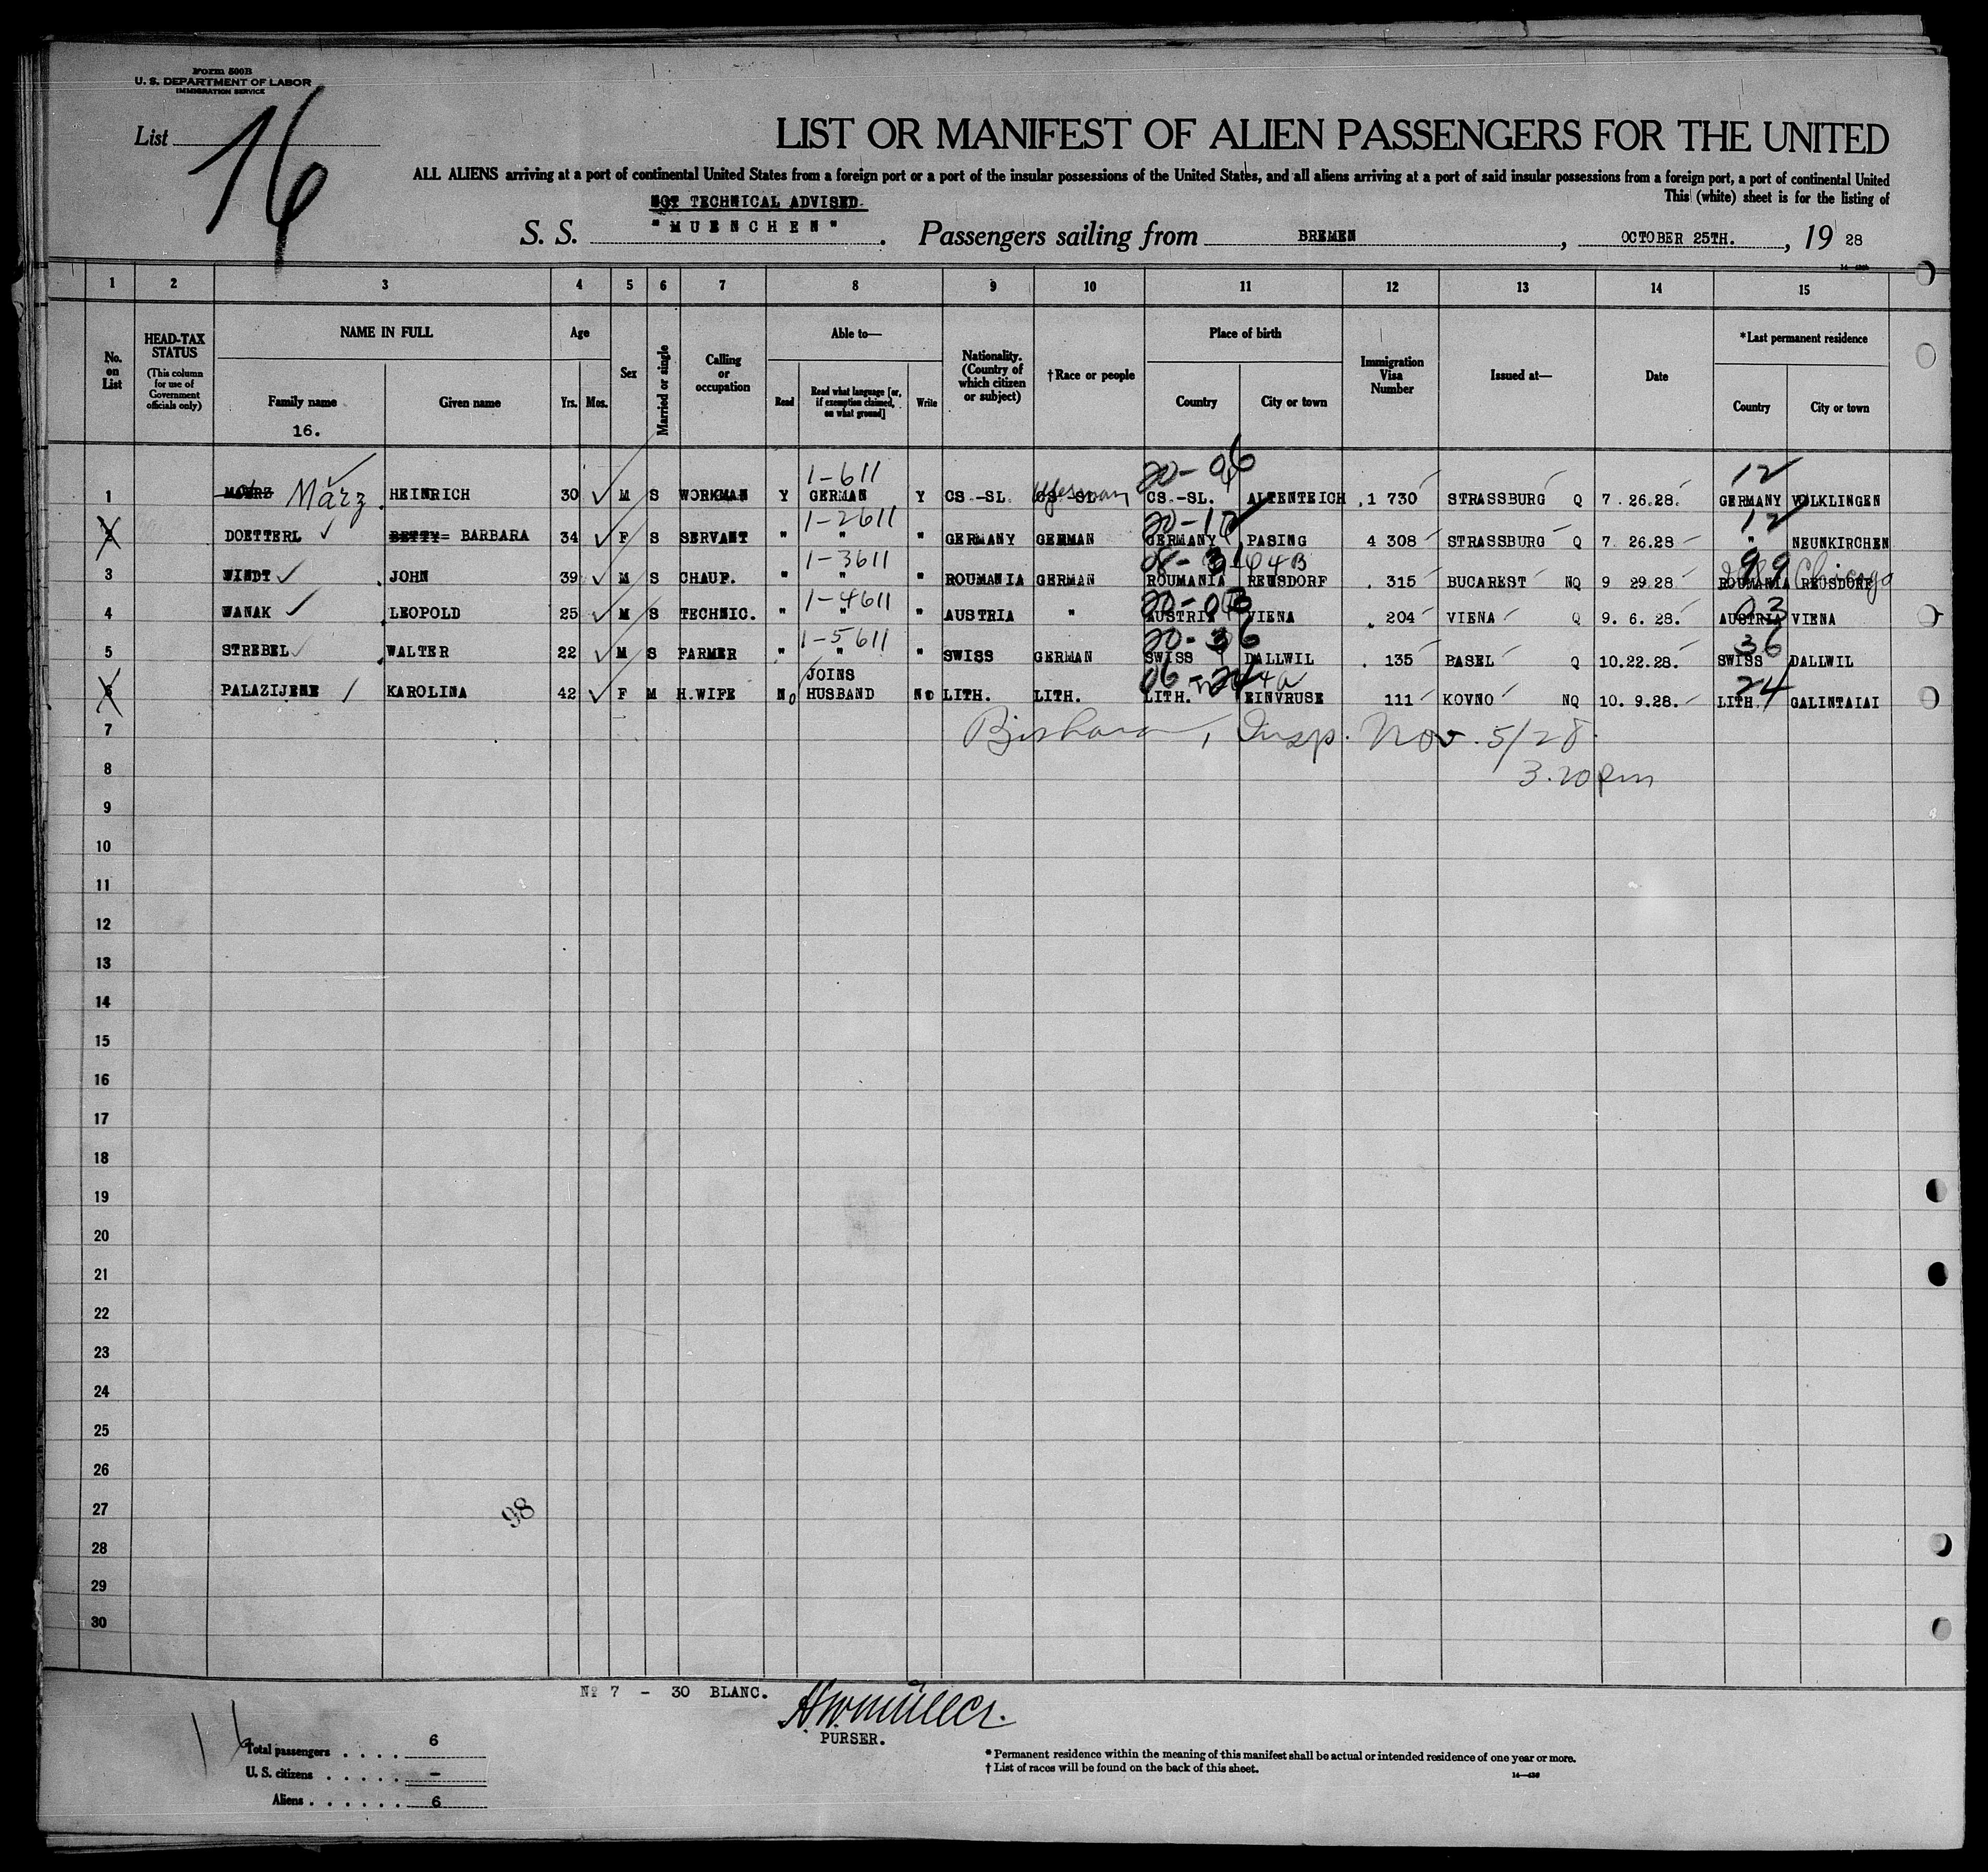 Form 500B
U. S. DEPARTMENT OF LABOR
IMMIGRATION SERVICE
List 16
LIST OR MANIFEST OF ALIEN PASSENGERS FOR THE UNITED
ALL ALIENS arriving at a port of continental United States from a foreign port or a port of the insular possessions of the United States, and all aliens arriving at a port of said insular possessions from a foreign port, a port of continental United
This (white) sheet is for the listing of
NOT TECHNICAL ADVISED.
S. S. "MUENCHEN". Passengers sailing from BREMEN, OCTOBER 25TH., 19 28
1 2 3 4 5 6 7 8 9 10 11 12 13 14 15
No. on List
HEAD-TAX STATUS
(This column for use of Government officials only)
NAME IN FULL
Family name
Given name
16.
Age
Yrs. Mos.
Sex
Married or single
Calling or occupation
Able to—
Read
Read what language [or, if exemption claimed, on what ground]
Write
Nationality. (Country of which citizen or subject)
†Race or people
Place of birth
Country
City or town
Immigration Visa Number
Issued at—
Date
*Last permanent residence
Country
City or town
1-611 20-06 12
1 März HEINRICH 30 M S WORKMAN Y GERMAN Y CS.-SL. German CS.-SL. ALTENTEICH 1 730 STRASSBURG Q 7.26.28. GERMANY VOLKLINGEN
1-2611 12
2 DOETTERL BETTY= BARBARA 34 F S SERVANT " " " GERMANY GERMAN GERMANY PASING 4 308 STRASSBURG Q 7.26.28 " NEUNKIRCHEN
1-3611 99
3 WINDT JOHN 39 M S CHAUF. " " " ROUMANIA GERMAN ROUMANIA REUSDORF 315 BUCAREST NQ 9 29.28. ROUMANIA REUSDORF Chicago
1-4611 03
4 WANAK LEOPOLD 25 M S TECHNIC. " " " AUSTRIA " AUSTRIA VIENA 204 VIENA Q 9. 6. 28. AUSTRIA VIENA
1-5611 20-36 36
5 STREBEL WALTER 22 M S FARMER " " " SWISS GERMAN SWISS DALLWIL 135 BASEL Q 10.22.28. SWISS DALLWIL
JOINS 24
6 PALAZIJENE KAROLINA 42 F M H.WIFE No HUSBAND No LITH. LITH. LITH. EINVRUSE 111 KOVNO NQ 10. 9.28. LITH. GALINTAIAI
7 Insp. Nov. 5/28
8 3.20 pm
9
10
11
12
13
14
15
16
17
18
19
20
21
22
23
24
25
26
27 98
28
29
30
No 7 - 30 BLANC.
H. W. Müller.
PURSER.
Total passengers . . . . 6
U. S. citizens . . . . . -
Aliens . . . . . . 6
* Permanent residence within the meaning of this manifest shall be actual or intended residence of one year or more.
† List of races will be found on the back of this sheet.